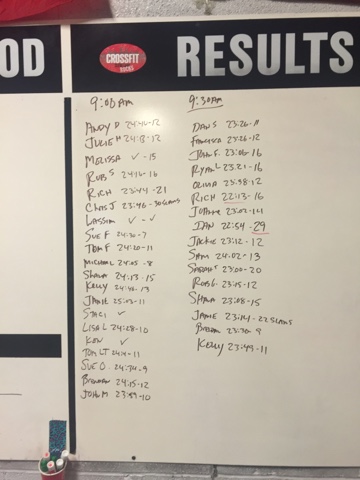 OD
CROSSFIT
RESULTS
9:00AM
ANDY P
JULIE H 24:13-12
MELISSA ✓ -15
ROB S 24:16-16
RICH 23:44-21
CHRIS J 23:46-30
LASSIM ✓ - ✓
SUE F 24:30-7
TOM F 24:20-11
MICHAEL 24:05-8
SHANA 24:13-15
KELLY 24:46-13
JAMIE 25:03-11
STACI ✓
LISA L 24:28-10
KEN ✓
TOM LT 24:14-11
SUE O. 24:34-9
BRENDAN 24:15-12
JOHN M 23:59-10
9:30AM
DAN S 23:26-11
FRANCESCA 23:26-12
JOHN F. 23:06-16
RYAN L 23:21-16
OLIVIA 23:38-12
RICH 22:13-16
JOANNE
IAN 22:54-29
JACKIE 23:12-12
SAM 24:02-13
23:00-20
ROB G 23:15-12
SHANA 23:08-15
JAMIE 23:14-22
9
KELLY 23:49-11